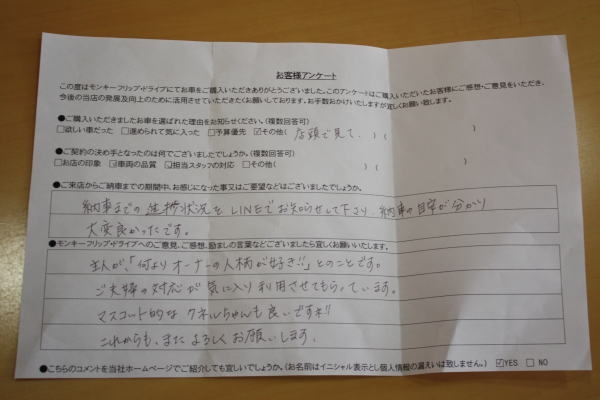 お客様アンケート
この度はモンキーフリップ・ドライブにてお車をご購入いただきありがとうございました。このアンケートはご購入いただいたお客様にご感想・ご意見をいただき、
今後の当店の発展及向上のために活用させていただきたくお願いしております。お手数おかけいたしますが宜しくお願い致します。
●ご購入いただきましたお車を選ばれた理由をお知らせください。(複数回答可)
□欲しい車だった □進められて気に入った □予算優先 ☑その他( 店頭で見て、 )( )
●ご契約の決め手となったのは何でございましたでしょうか。(複数回答可)
□お店の印象 ☑車両の品質 ☑担当スタッフの対応 □その他( )( )
●ご来店からご納車までの期間中、お感じになった事又はご要望などはございましたでしょうか。
納車までの進捗状況をLINEでお知らせして下さり、納車の目安が分かり
大変良かったです。
●モンキーフリップ・ドライブへのご意見、ご感想、励ましの言葉などございましたら宜しくお願いいたします。
主人が、「何よりオーナーの人柄が好き!!」とのことです。
ご夫婦の対応が気に入り利用させてもらっています。
マスコット的なクネルちゃんも良いですネ!!
これからも、また よろしくお願いします。
●こちらのコメントを当社ホームページでご紹介しても宜しいでしょうか。(お名前はイニシャル表示とし個人情報の漏えいは致しません。) ☑YES □NO